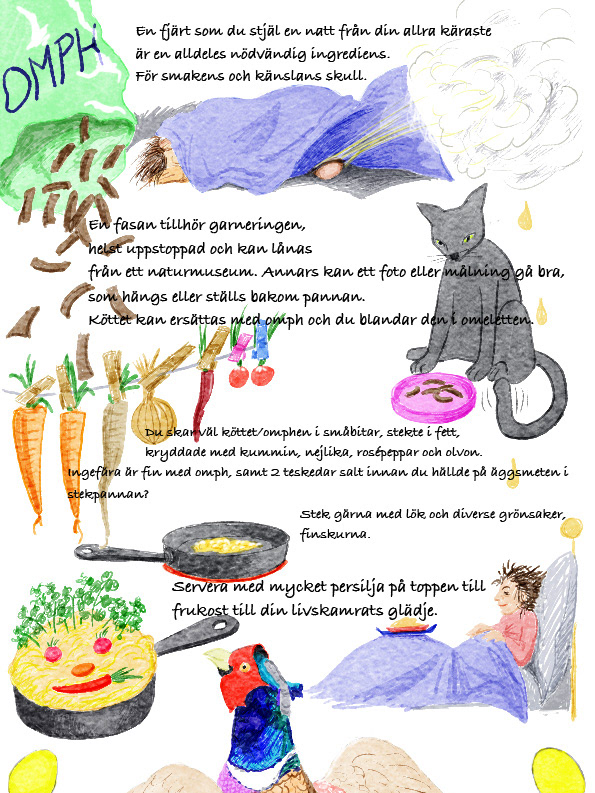 OMPH
En fjärt som du stjäl en natt från din allra käraste
är en alldeles nödvändig ingrediens.
För smakens och känslans skull.
En fasan tillhör garneringen,
helst uppstoppad och kan lånas
från ett naturmuseum. Annars kan ett foto eller målning gå bra,
som hängs eller ställs bakom pannan.
Köttet kan ersättas med omph och du blandar den i omeletten.
Du skar väl köttet/omphen i småbitar, stekte i fett,
kryddade med kummin, nejlika, rosépeppar och olvon.
Ingefära är fin med omph, samt 2 teskedar salt innan du hällde på äggsmeten i
stekpannan?
Stek gärna med lök och diverse grönsaker,
finskurna.
Servera med mycket persilja på toppen till
frukost till din livskamrats glädje.